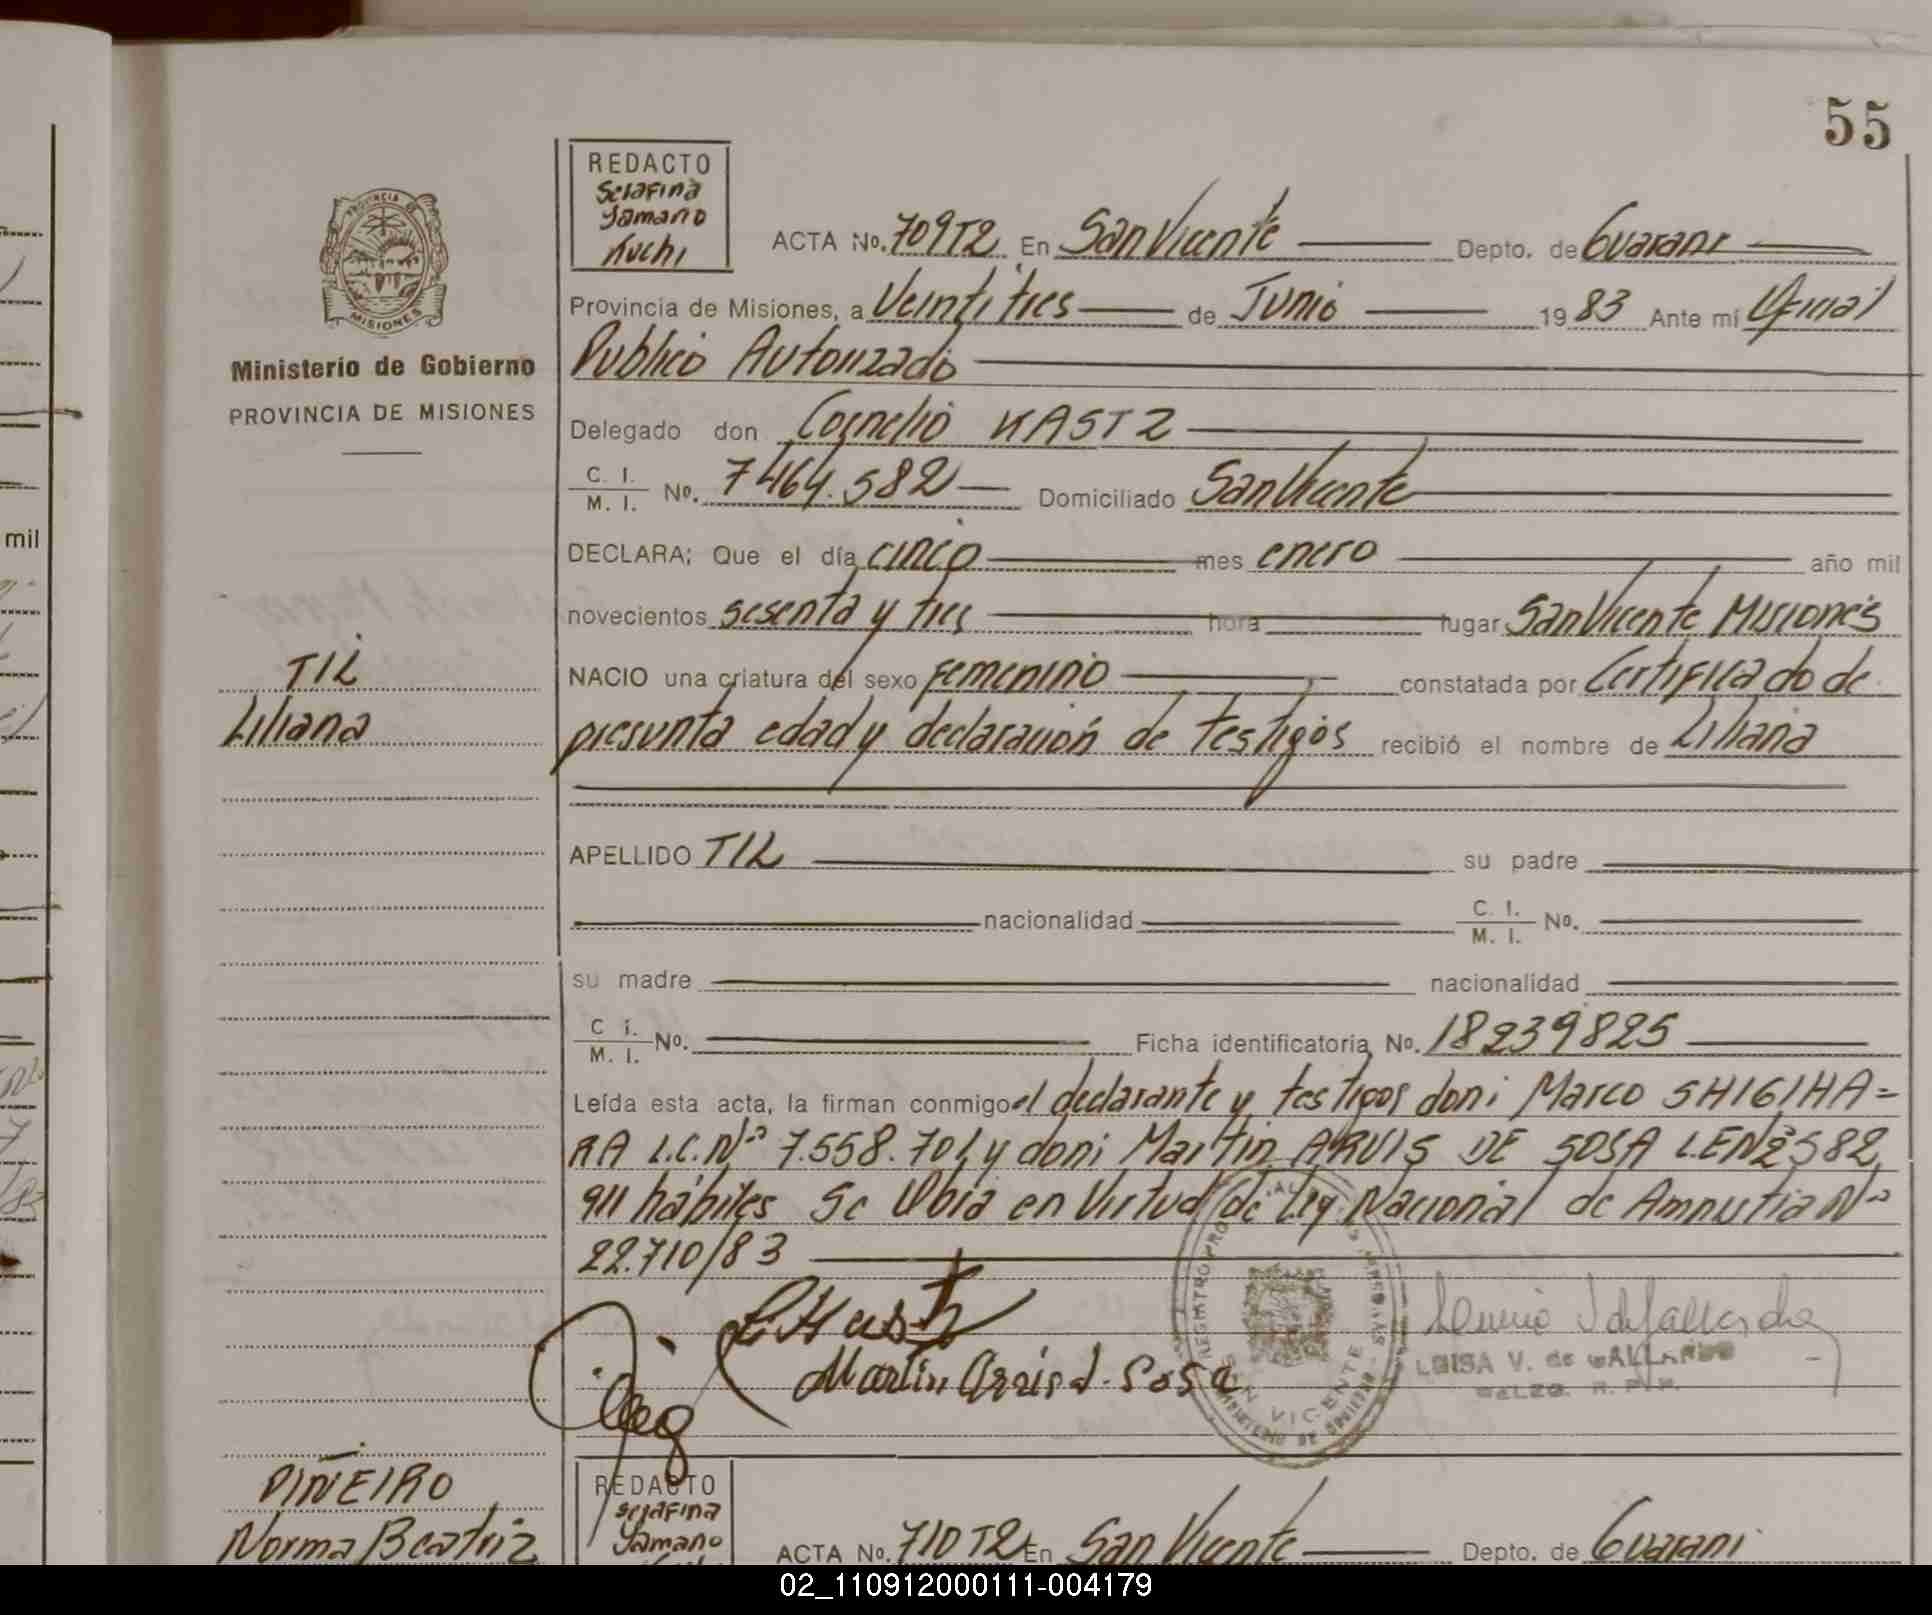 55
REDACTO
Serafina
Yamano
Kuchi
ACTA No. 709T2 En San Vicente Depto. de Guarani
Provincia de Misiones, a Veintitres de Junio 19 83 Ante mi Oficial
Publico Autorizado
PROVINCIA DE
MISIONES
Ministerio de Gobierno
PROVINCIA DE MISIONES
Delegado don Cornelio KASTZ
C. I.
M. I. No. 7464.582 Domiciliado San Vicente
DECLARA; Que el día cinco mes enero año mil
novecientos sesenta y tres hora lugar San Vicente Misiones
TIL
Liliana
NACIO una criatura del sexo femenino constatada por Certificado de
presunta edad y declaración de testigos recibió el nombre de Liliana
APELLIDO TIL su padre
nacionalidad C. I.
M. I. No.
su madre nacionalidad
C i.
M. I. No. Ficha identificatoria No. 18239825
Leída esta acta, la firman conmigo el declarante y testigos don: Marco SHIGIHA=
RA I.C.Nº 7.558.701 y don: Martin ARVIS DE SOSA L.ENº2582
911 hábiles Se Obia en Virtud de Ley Nacional de Amnistia Nº
22.710/83
Martin
Sosa
LUISA V. de GALLARDO
DELEG. R. P. P.
SAN VICENTE
PIÑEIRO
Norma Beatriz
REDACTO
Serafina
Yamano
ACTA No. 710T2 En San Vicente Depto. de Guarani
mil
02_110912000111-004179